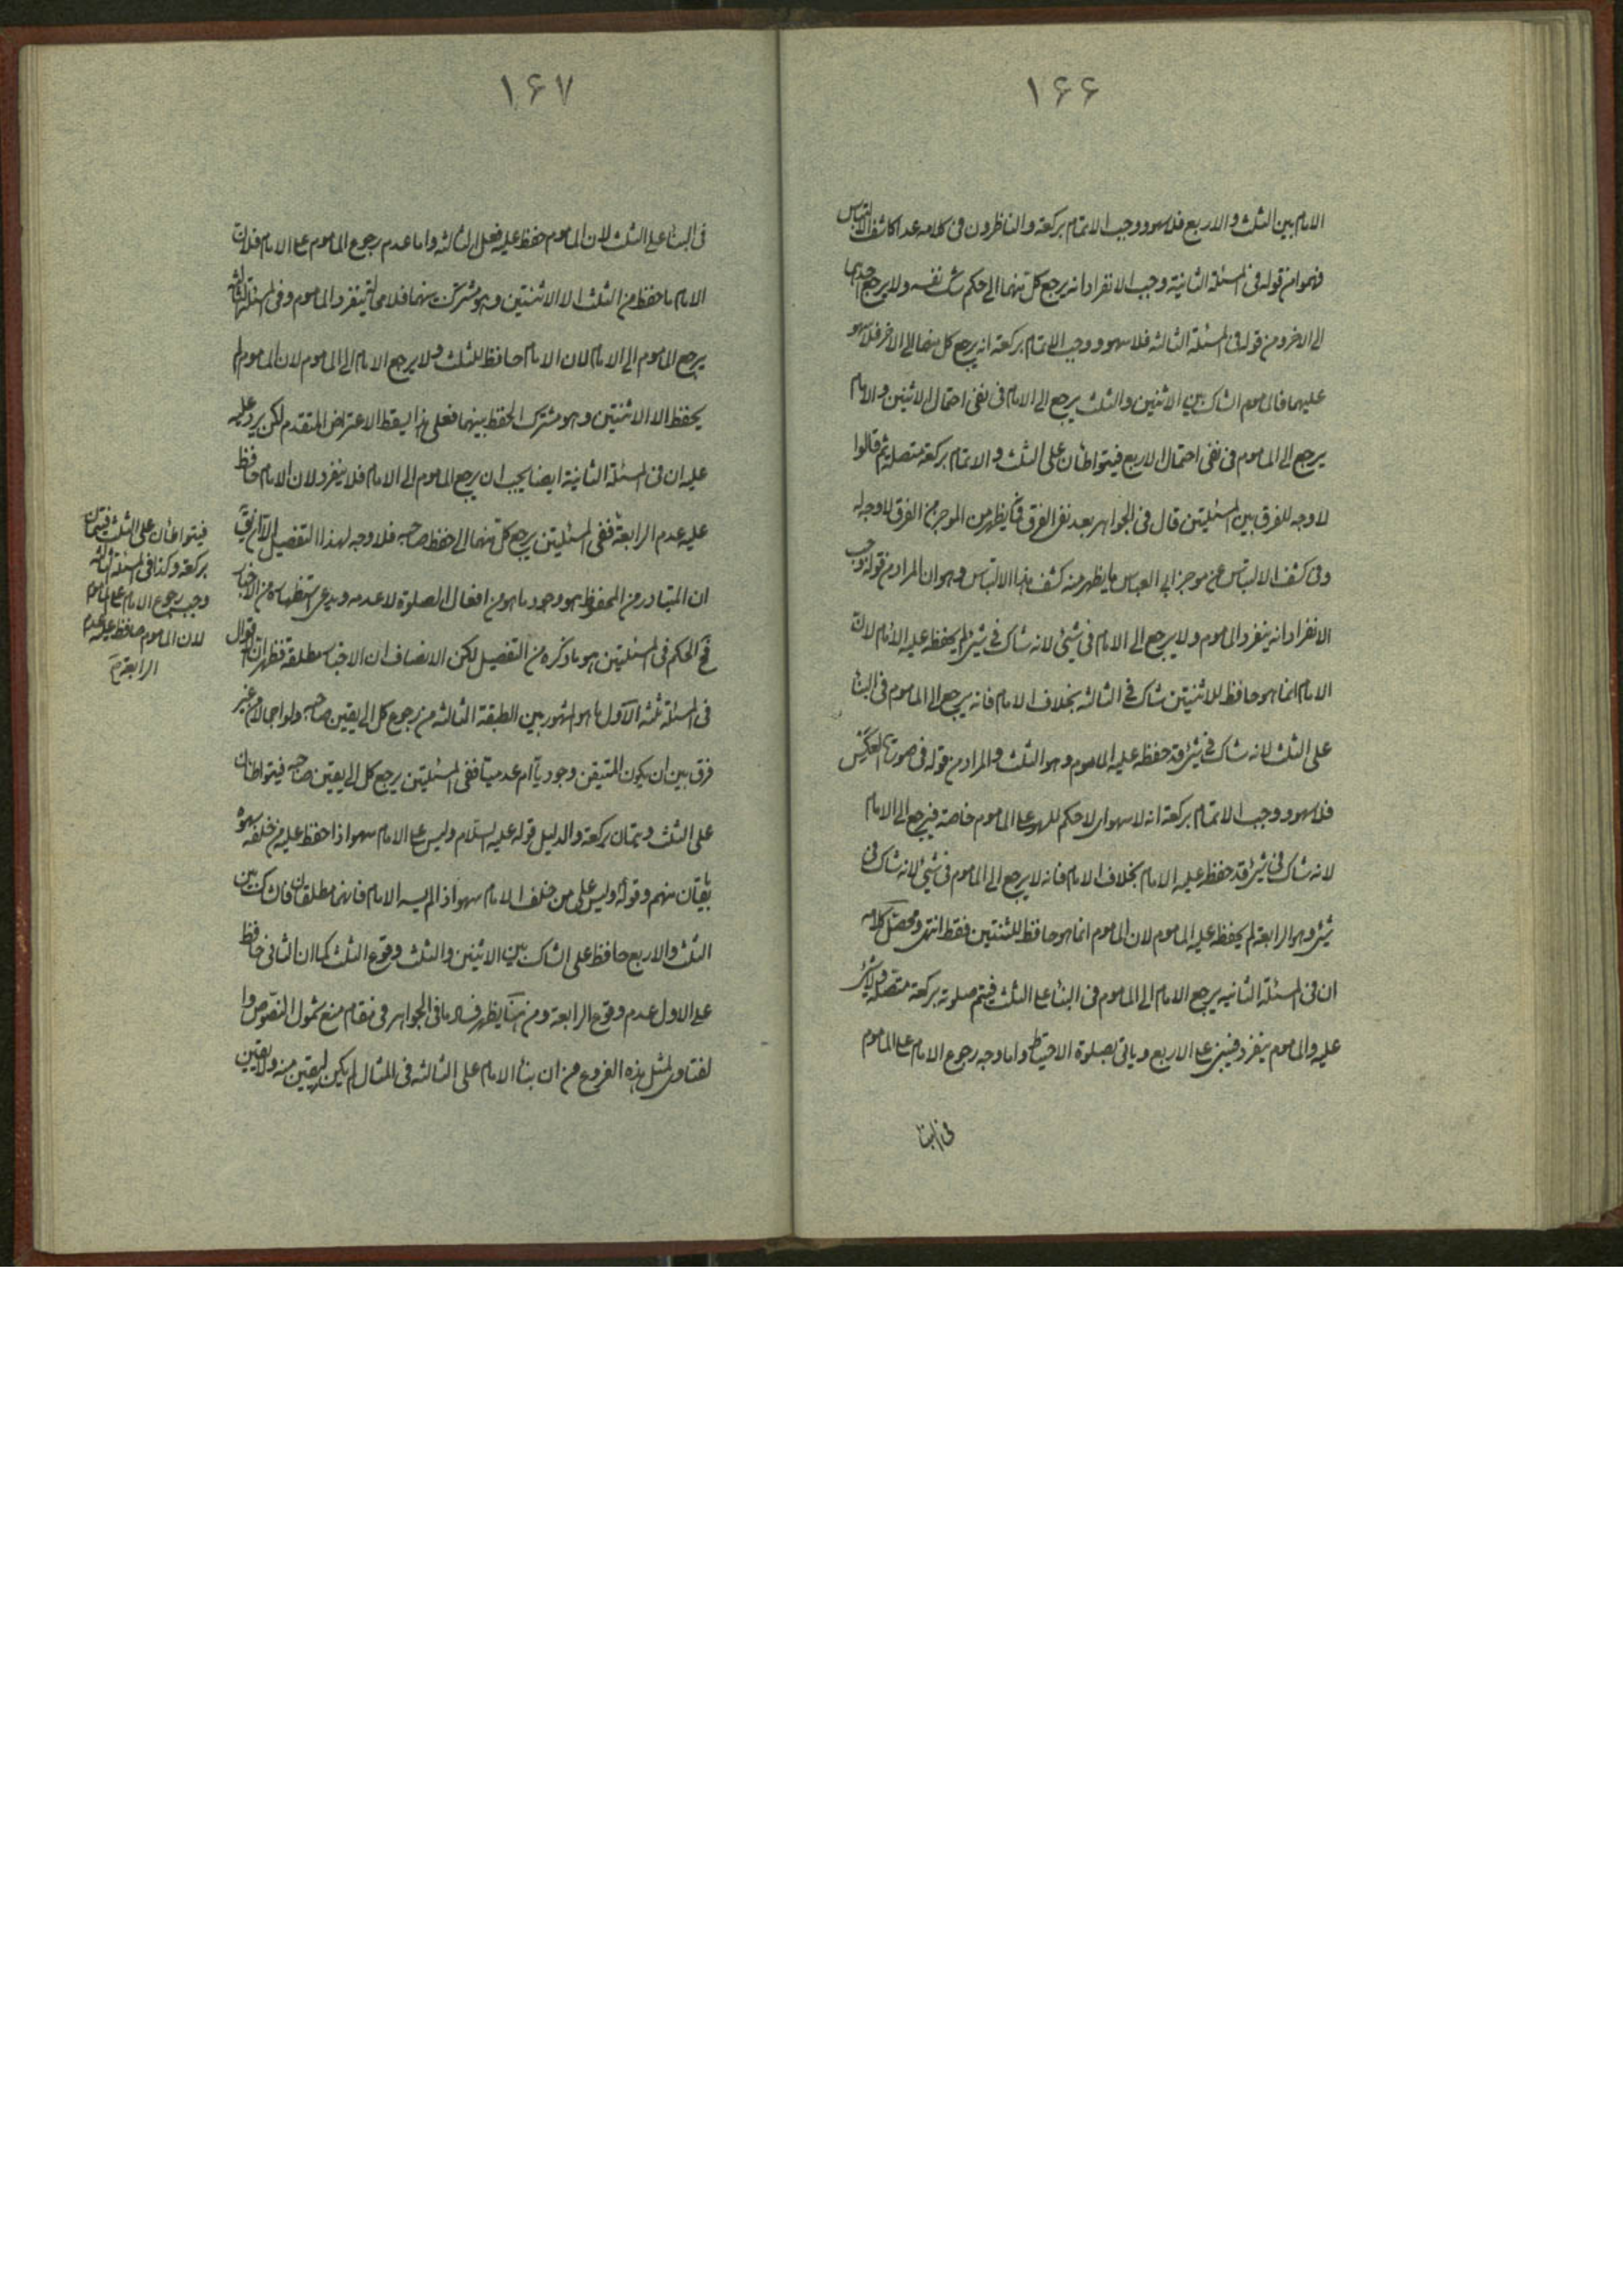 ١۶۶
الامام بين الثلث و الاربع فلا سهو و وجب الاتمام بركعة و الناظرون فى كلامه عدا كاشف الالتباس
فهموا من قوله فى المسئلة الثانية وجب الانفراد انه يرجع كل منهما الى حكم شك نفسه ولا يرجع احدهما
الى الاخر و من قوله فى المسئلة الثالثه فلا سهو و وجب الاتمام بركعة انه يرجع كل منهما الى الاخر فلا سهو
عليهما فالماموم الشاك بين الاثنين و الثلث يرجع الى الامام فى نفى احتمال الاثنين و الامام
يرجع الى الماموم فى نفى احتمال الاربع فيتواطئان على الثلث و الاتمام بركعة متصلة ثم قالوا
لا وجه للفرق بين المسئلتين قال فى الجواهر بعد نفى الفرق فما يظهر من الموجز من الفرق لا وجه له
وفى كشف الالتباس عن موجز ابى العباس ما يظهر منه كشف هذا الالتباس وهو ان المراد من قوله وجب
الانفراد انه ينفرد الماموم ولا يرجع الى الامام فى شيئ لانه شاك فى شيئ لم يحفظه عليه الامام لان
الامام انما هو حافظ للاثنتين شاك فى الثالثه بخلاف الامام فانه يرجع الى الماموم فى البناء
على الثلث لانه شاك فى شيئ قد حفظ عليه الماموم وهو الثلث و المراد من قوله فى صورة العكس
فلا سهو و وجب الاتمام بركعة انه لا سهو اى لا حكم للسهو على الماموم خاصة فيرجع الى الامام
لانه شاك فى شيئ قد حفظ عليه الامام بخلاف الامام فانه لا يرجع الى الماموم فى شيئ لانه شاك فى
شيئ وهو الرابعة لم يحفظه عليه الماموم لان الماموم انما هو حافظ للثنتين فقط انتهى و محصل كلامه
ان فى المسئلة الثانيه يرجع الامام الى الماموم فى البناء على الثلث فيتم صلوته بركعة متصلة ولا شيئ
عليه و الماموم ينفرد فيبنى على الاربع و ياتى بصلوة الاحتياط و اما وجه رجوع الامام على الماموم
فى البنا
١۶٧
فى البناء على الثلث لان الماموم حفظ عليه فعل الثالثه و اما عدم رجوع الماموم على الامام فلان
الامام ما حفظ من الثلث الا الاثنتين و هو مشترك بينهما فلا محالة ينفرد الماموم و فى المسئلة الثالثه
يرجع الماموم الى الامام لان الامام حافظ للثلث ولا يرجع الامام الى الماموم لان الماموم لم
يحفظ الا الاثنتين و هو مشترك الحفظ بينهما فعلى هذا يسقط الاعتراض المتقدم لكن يرد عليه
عليه ان فى المسئلة الثانية ايضا يجب ان يرجع الماموم الى الامام فلا ينفرد لان الامام حافظ
عليه عدم الرابعة ففى المسئلتين يرجع كل منهما الى حفظ صاحبه فلا وجه لهذا التفصيل الا ان يق
ان المتبادر من المحفوظ هو وجود ما هو من افعال الصلوة لا عدمه و يدعى استظهاره من الاخبار
فح الحكم فى المسئلتين هو ما ذكره من التفصيل لكن الانصاف ان الاخبار مطلقة فظهر ان الاقوال
فى المسئلة ثلثه الاول ما هو المشهور بين الطبقة الثالثه من رجوع كل الى يقين صاحبه ولو اجمالا من غير
فرق بين ان يكون المتيقن وجوديا ام عدميا ففى المسئلتين يرجع كل الى يقين صاحبه فيتواطئان
على الثلث و يتمان بركعة و الدليل قوله عليه السلام وليس على الامام سهو اذا حفظ عليه من خلفه سهوه
بايقان منهم و قوله وليس على من خلف الامام سهو اذا لم يسه الامام فانهما مطلقان فالشاك بين
الثلث و الاربع حافظ على الشاك بين الاثنين و الثلث وقوع الثلث كما ان الثانى حافظ
على الاول عدم وقوع الرابعة و من هنا يظهر فساد ما فى الجواهر فى مقام منع شمول النصوص و ا
لفتاوى لمثل هذه الفروع من ان بناء الامام على الثالثه فى المثال لم يكن ليقين منه ولا يقين
فيتواطئان على الثلث فيتمان
بركعة و كذا فى المسئلة الثالثه
وجب رجوع الامام على الماموم
لان الماموم حافظ عليه عدم
الرابعة م